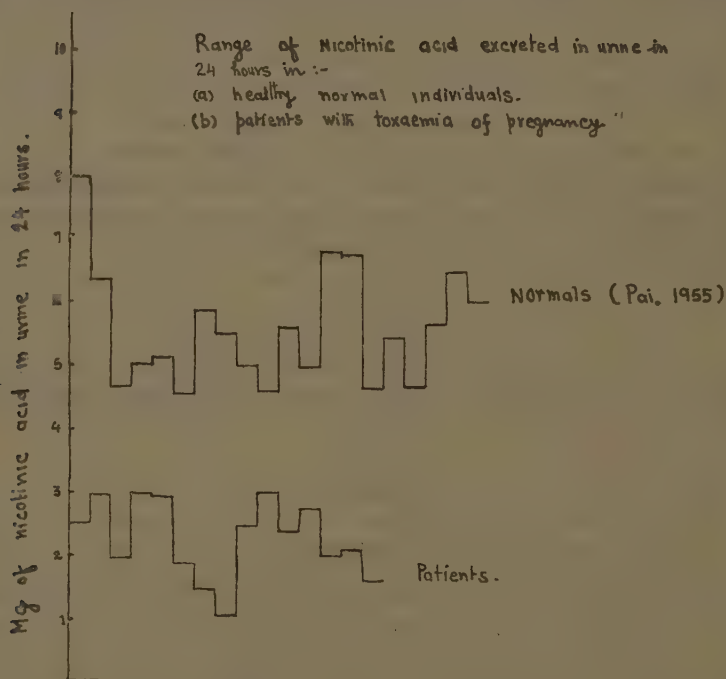 Range of Nicotinic acid excreted in urine in
24 hours in :-
(a) healthy normal individuals.
(b) patients with toxaemia of pregnancy "
Mg of nicotinic acid in urine in 24 hours.
10
9
8
7
5
4
3
2
1
Normals (Pai. 1955)
Patients.